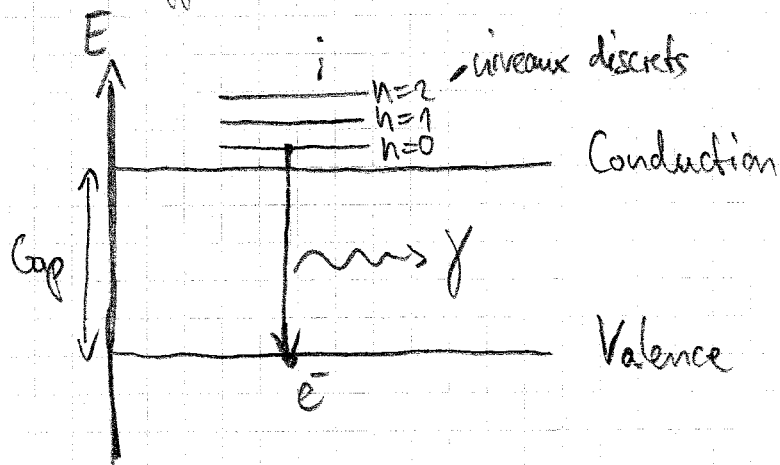 E
niveaux discrets
n=2
n=1
n=0
Conduction
Gap
γ
Valence
e⁻